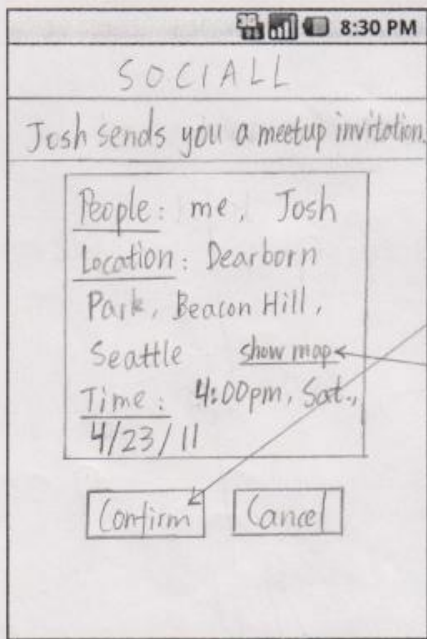 3G 8:30 PM
SOCIALL
Josh sends you a meetup invitation.
People: me, Josh
Location: Dearborn
Park, Beacon Hill,
Seattle show map
Time: 4:00pm, Sat.,
4/23/11
Confirm Cancel